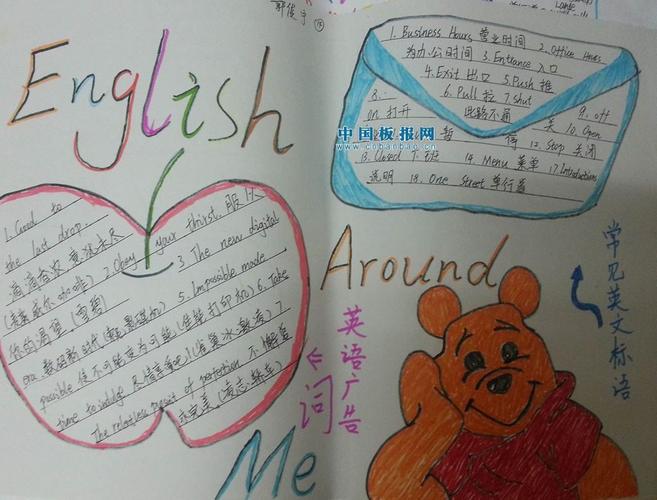 English
Around
Me
1. Business Hours 营业时间 2. Office Hours
为办公时间 3. Entrance 入口
4. Exit 出口 5. Push 推
6. Pull 拉 7. Shut
8.
on 打开 此路不通 关 9. off
10. Open
暂 停 12. Stop 关闭
13. Closed 下班 14. Menu 菜单 17. Introductions
说明 18. One Street 单行道
中国板报网
www.cnbanbao.cn
1. Good to
the last drop.
滴滴香浓 意犹未尽
2. Obey your thirst. 服从
你的渴望 (雪碧)
3. The new digital
era. 数码新时代
5. Impossible made
possible 使不可能变为可能 (佳能打印机) 6. Take
time to indulge 尽情享受吧! (雀巢冰激凌) 7
The relentless pursit of perfection 不懈追
求完美. (凌志轿车)
英语广告
词
常见英文标语